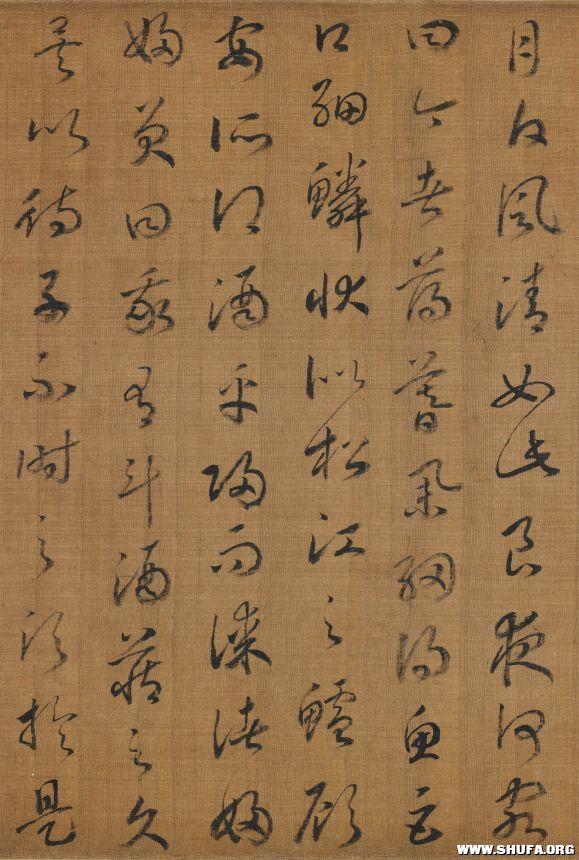 月白風清如此良夜何客
曰今者薄暮舉網得魚巨
口細鱗狀似松江之鱸顧
安所得酒乎歸而謀諸婦
婦曰我有斗酒藏之久
矣以待子不時之須於是
WWW.SHUFA.ORG